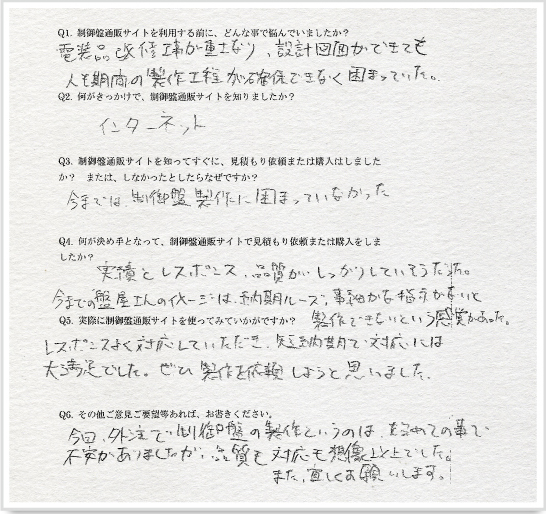 Q1. 制御盤通販サイトを利用する前に、どんな事で悩んでいましたか？
電装品改修工事が重なり、設計図面ができても
人も期間の製作工程が確保できなく困まっていた。
Q2. 何がきっかけで、制御盤通販サイトを知りましたか？
インターネット
Q3. 制御盤通販サイトを知ってすぐに、見積もり依頼または購入はしました
か？ または、しなかったとしたらなぜですか？
今までは、制御盤製作に困まっていなかった
Q4. 何が決め手となって、制御盤通販サイトで見積もり依頼または購入をしま
したか？
実積とレスポンス、品質がしっかりしていそうだった。
今までの盤屋さんのイメージは、納期ルーズ、事細かな指示がないと
製作できないという感覚があった。
Q5. 実際に制御盤通販サイトを使ってみていかがですか？
レスポンスよく対応していただき、短納期で対応には
大満足でした。ぜひ製作を依頼しようと思いました。
Q6. その他ご意見ご要望等あれば、お書きください。
今回、外注で制御盤の製作というのは、初めての事で
不安がありましたが、品質も対応も想像以上でした。
また、宜しくお願いします。